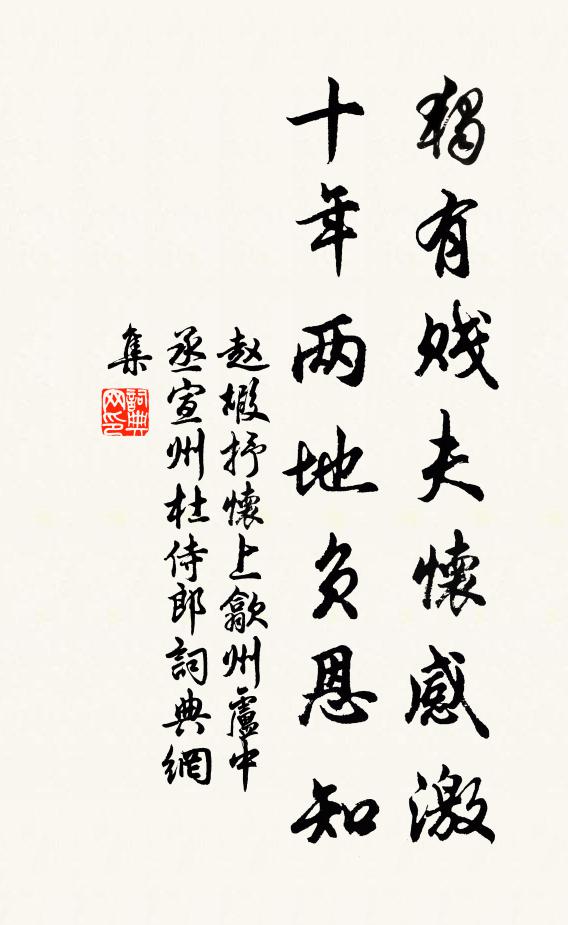 獨有賤夫懷感激
十年两地负恩知
赵嘏抒懷上歙州盧中
丞宣州杜侍郎詞典網
集
詞典网印